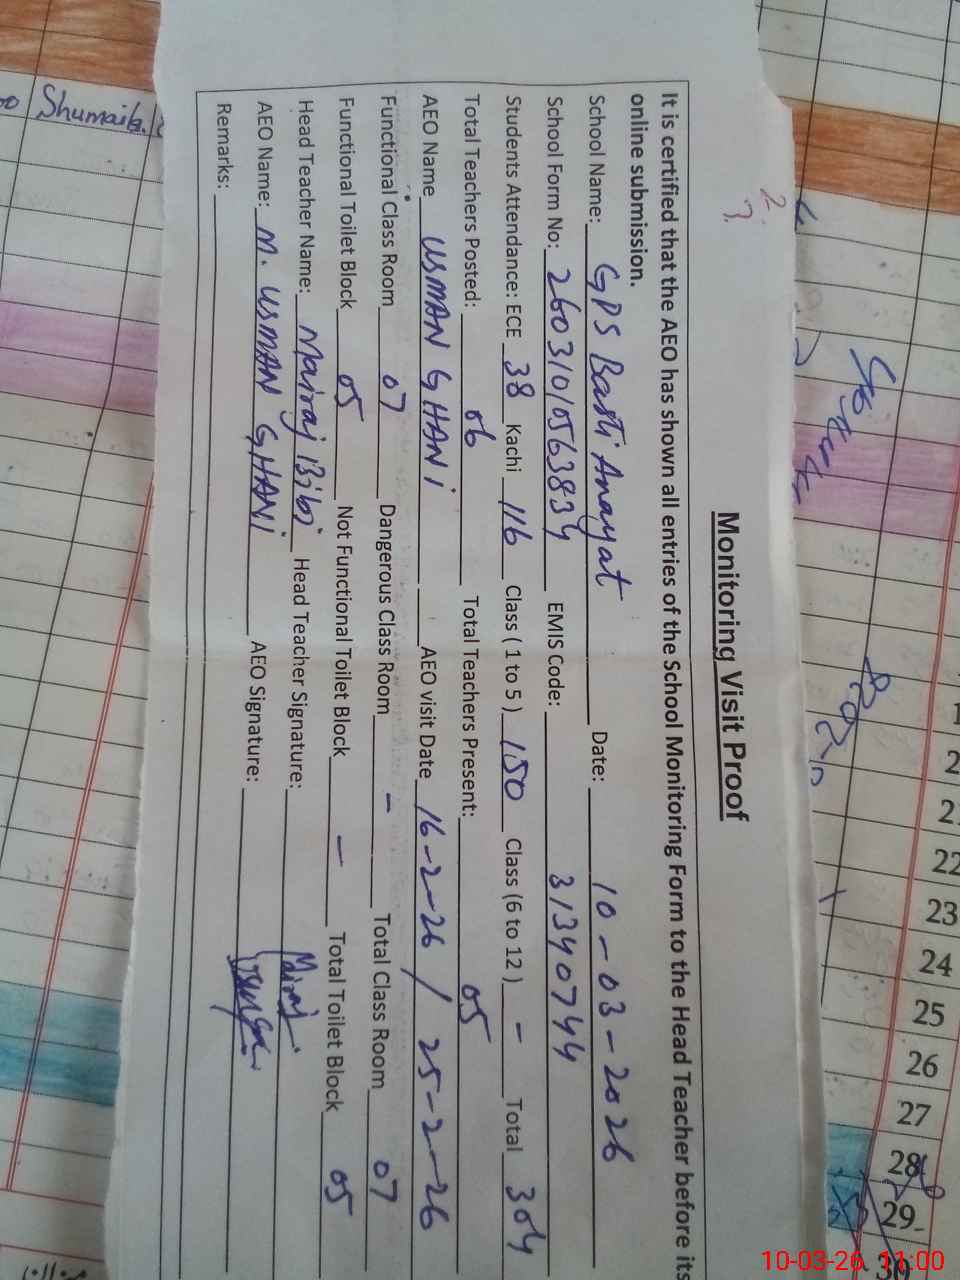 Monitoring Visit Proof
It is certified that the AEO has shown all entries of the School Monitoring Form to the Head Teacher before its
online submission.
School Name: GPS Basti Anayat Date: 10-03-2026
School Form No: 26031010563834 EMIS Code: 31340744
Students Attendance: ECE 38 Kachi 116 Class ( 1 to 5 ) 150 Class (6 to 12 ) - Total 304
Total Teachers Posted: 06 Total Teachers Present: 05
AEO Name USMAN GHANi AEO visit Date 16-2-26 / 25-2-26
Functional Class Room 07 Dangerous Class Room - Total Class Room 07
Functional Toilet Block 05 Not Functional Toilet Block - Total Toilet Block 05
Head Teacher Name: Mairaj Bibi Head Teacher Signature: Mairaj
AEO Name: M. USMAN GHANi AEO Signature:
Remarks:
Shumaila
2
21
22
23
24
25
26
27
28
29
30
10-03-26 11:00